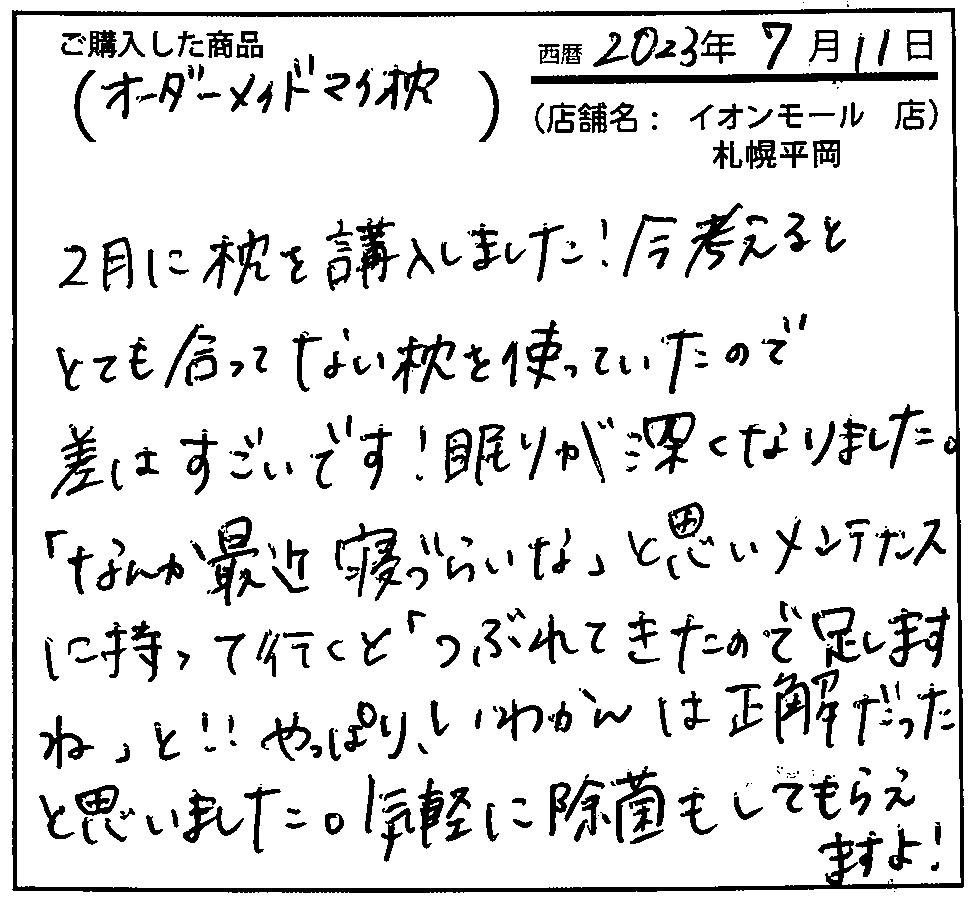 ご購入した商品
(オーダーメイドマイ枕)
西暦 2023年 7月11日
(店舗名： イオンモール 店)
札幌平岡
2月に枕を購入しました!今考えると
とても合ってない枕を使っていたので
差はすごいです!眠りが深くなりました。
「なんか最近寝づらいな」と思いメンテナンス
に持って行くと「つぶれてきたので足します
ね」と!!やっぱり、いわかんは正解だった
と思いました。気軽に除菌もしてもらえ
ますよ!